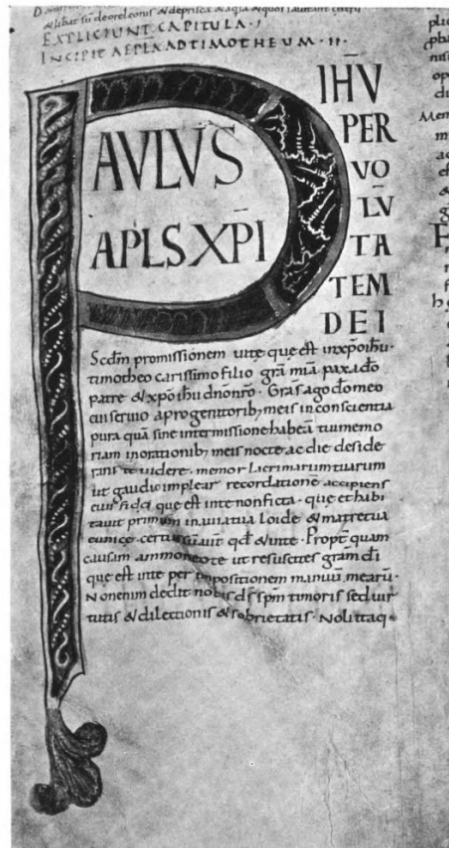 EXPLICIUNT CAPITULA·
INCIPIT AEPLA AD TIMOTHEUM·II·
PAVLVS
APLS XP̄I
IHŪ
PER
VO
LŪ
TA
TEM
DEI
Scd̄m promissionem uite que est inxp̄oihu·
timotheo carissimo filio grā miā pax ado
patre & xpoihu dnōnrō· Gras̄ ago dōmeo
cui seruio aprogenitorib; meis inconscientia
pura quā sine intermissione habeā tui memo
riam inorationib; meis nocte ac die deside
rans te uidere· memor lacrimarum tuarum
ut gaudio implear recordationē accipiens
eius fidei que est inte nonficta· que et habi
tauit primum in auia tua loide & matre tua
eunice· certus sū aut̄ qd̄ & inte· Propt̄ quam
causam ammoneo te ut resuscites grām dī
que est inte per impositionem manuū mearū·
Nonenim dedit nobis ds̄ sp̄m timoris sed uir
tutis & dilectionis & sobrietatis· Nolitaq·